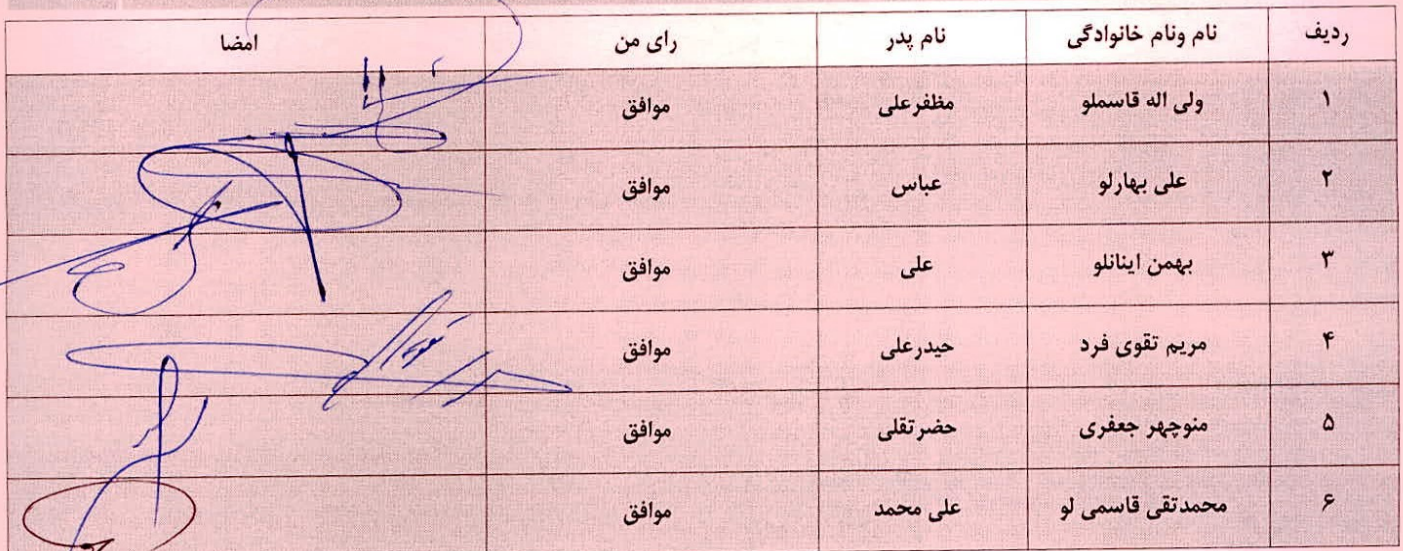 ردیف نام ونام خانوادگی نام پدر رای من امضا
۱ ولی اله قاسملو مظفرعلی موافق
۲ علی بهارلو عباس موافق
۳ بهمن اینانلو علی موافق
۴ مریم تقوی فرد حیدرعلی موافق
۵ منوچهر جعفری حضرتقلی موافق
۶ محمدتقی قاسمی لو علی محمد موافق